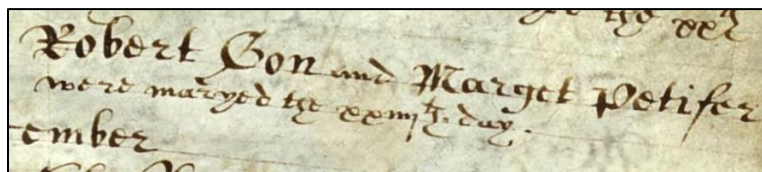 the xxj
Robert Gon and Marget Petifer
were maryed the xxiijth day.
ember